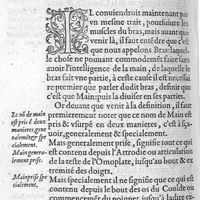 IL conuiendroit maintenant par
vn mesme trait, poursuiure les
muscles du bras, mais auant que
venir là, il faut entẽdre que c'est
que nous appelons Bras: laquel-
le chose ne pouuant commodemẽt faire sans
auoir l'intelligence de la main, de laquelle le
bras fait vne partie, à ceste cause il est necessai-
re premier que parler dudit bras, definir que
c'est que Main: puis la diuiser en ses parties.
Or deuant que venir à la definition, il faut
premierement noter que ce nom de Main est
pris & vsurpé en deux manieres, c'est à sça-
uoir, generalement & specialement.
Mais generalement prise, signifie tout ce qui
est contenu depuis l'Artrodie ou articulation
de la teste de l'Omoplate, iusqu'au bout & ex-
tremité des doigts.
Mais specialement il ne signifie que ce qui est
contenu depuis le bout des os du Coulde ou
commencement du poignet, iusqu'à
Le nõ de main
est pris ẽ deux
manieres gene
ralemẽt & spe-
cialement.
Main genera-
lement prise.
Main prise spe
cialement,